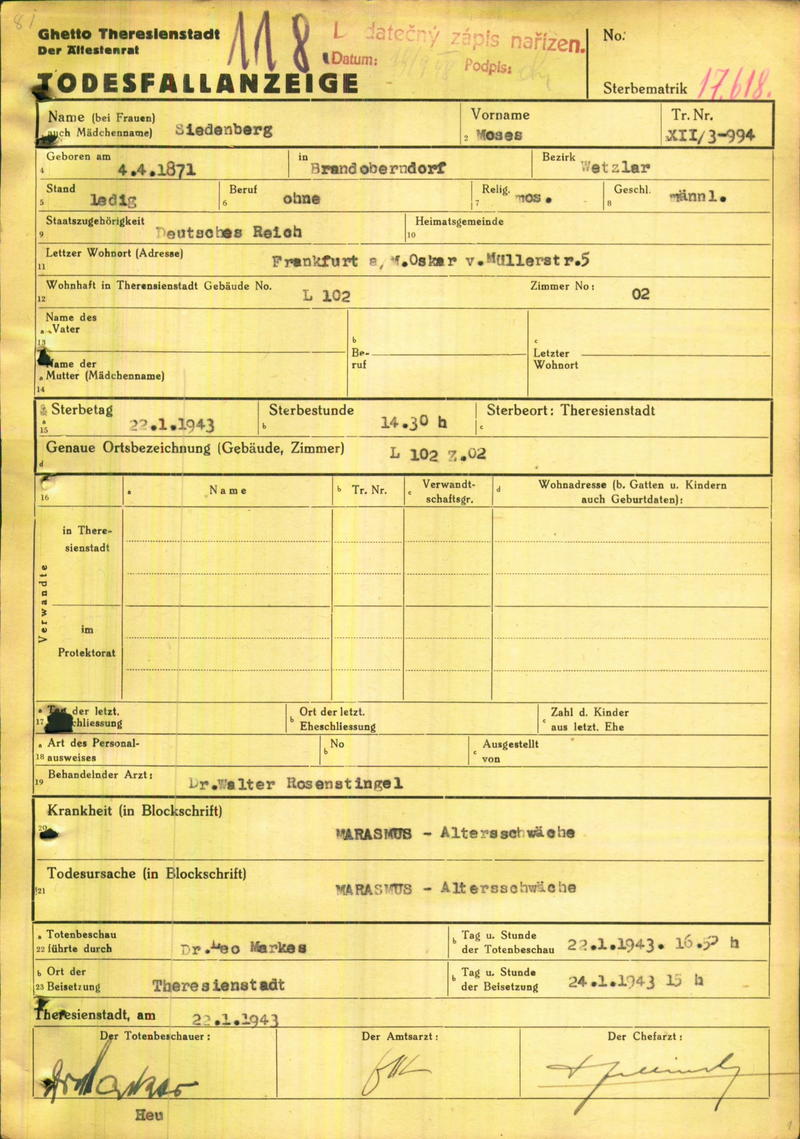 81
Ghetto Theresienstadt
Der Ältestenrat
118
datečný zápis nařízen.
Datum:
Podpis:
No:
TODESFALLANZEIGE
Sterbematrik 17.618.
Name (bei Frauen)
auch Mädchenname) Siedenberg
Vorname
2 Moses
Tr. Nr.
XII/3-994
Geboren am
4 4.4.1871
in
Brandoberndorf
Bezirk
Wetzlar
Stand
5 ledig
Beruf
6 ohne
Relig.
7 mos.
Geschl.
8 männl.
Staatszugehörigkeit
9 Deutsches Reich
Heimatsgemeinde
10
Lettzer Wohnort (Adresse)
11 Frankfurt a, M.Oskar v.Müllerstr.5
Wohnhaft in Therensienstadt Gebäude No.
12 L 102
Zimmer No:
02
Name des
a Vater
13
b
Be-
ruf
c
Letzter
Wohnort
Name der
a Mutter (Mädchenname)
14
Sterbetag
a
15 22.1.1943
Sterbestunde
b 14.30 h
Sterbeort: Theresienstadt
c
Genaue Ortsbezeichnung (Gebäude, Zimmer)
d L 102 Z.02
16
a Name
b Tr. Nr.
c Verwandt-
schaftsgr.
d Wohnadresse (b. Gatten u. Kindern
auch Geburtdaten):
Verwandte
in There-
sienstadt
im
Protektorat
a Tag der letzt.
17 chliessung
b Ort der letzt.
Eheschliessung
c Zahl d. Kinder
aus letzt. Ehe
a Art des Personal-
18 ausweises
b No
c Ausgestellt
von
Behandelnder Arzt:
19 Dr.Walter Rosenstingel
Krankheit (in Blockschrift)
20 MARASMUS - Altersschwäche
Todesursache (in Blockschrift)
21 MARASMUS - Altersschwäche
a Totenbeschau
22 führte durch Dr. Markes
b Tag u. Stunde
der Totenbeschau 22.1.1943. 16.5 h
b Ort der
23 Beisetzung Theresienstadt
b Tag u. Stunde
der Beisetzung 24.1.1943 15 h
Theresienstadt, am 22.1.1943
Der Totenbeschauer:
Der Amtsarzt:
Der Chefarzt:
Heu
1